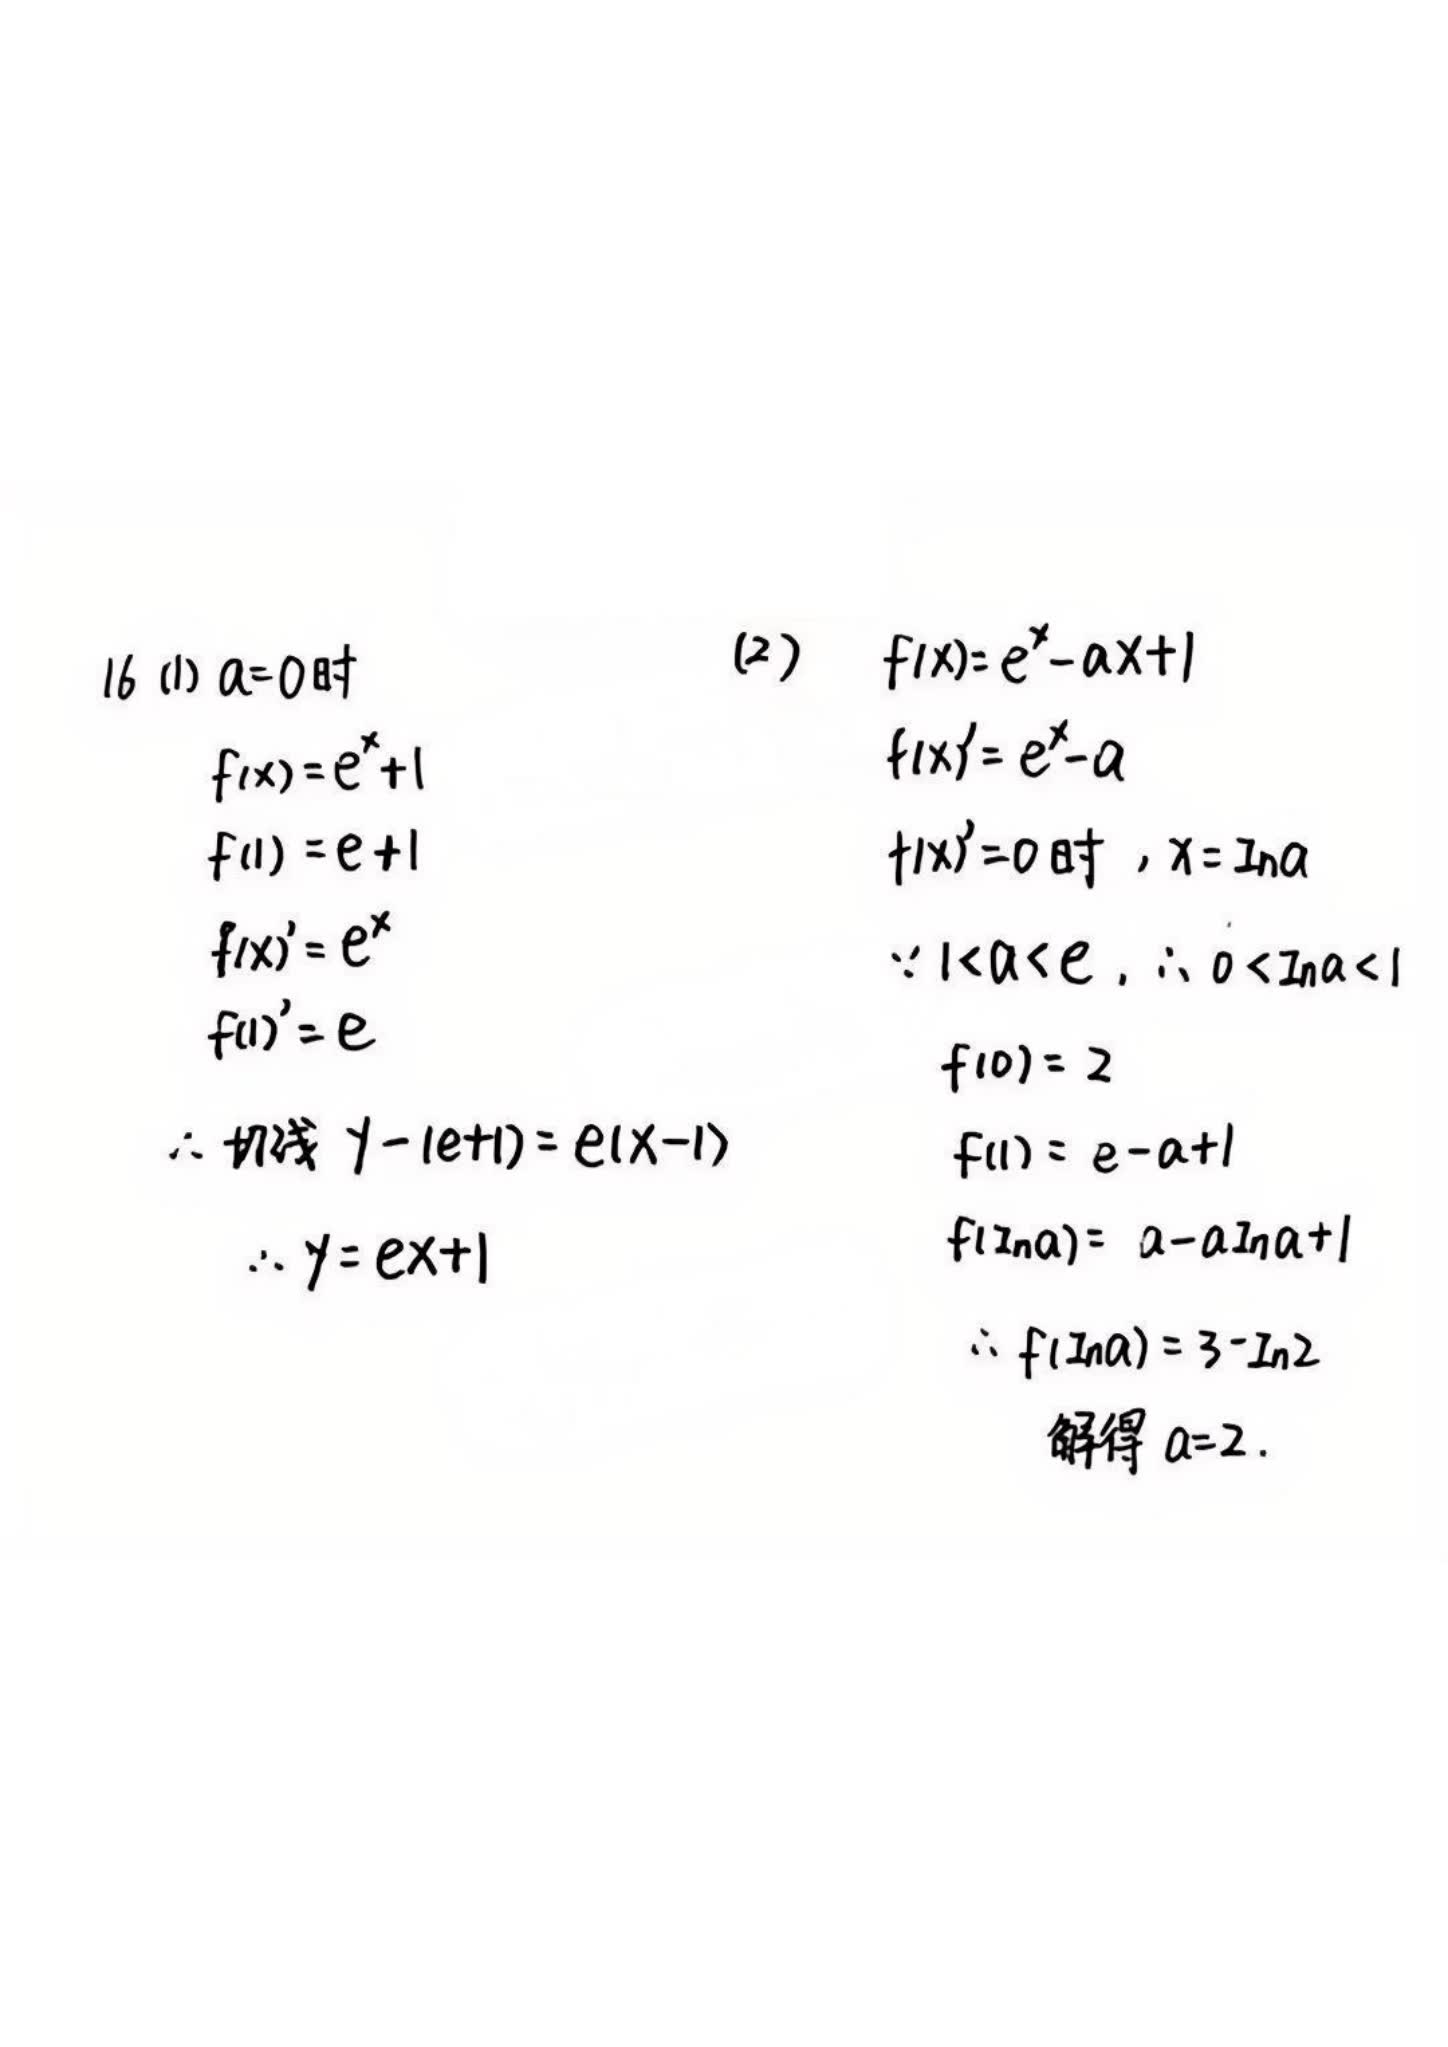 16 (1) a=0时
f(x)=eˣ+1
f(1)=e+1
f(x)'=eˣ
f(1)'=e
∴切线 y-(e+1)=e(x-1)
∴y=ex+1
(2) f(x)=eˣ-ax+1
f(x)'=eˣ-a
f(x)'=0时，x=lna
∵1<a<e，∴0<lna<1
f(0)=2
f(1)=e-a+1
f(lna)=a-alna+1
∴f(lna)=3-ln2
解得a=2.